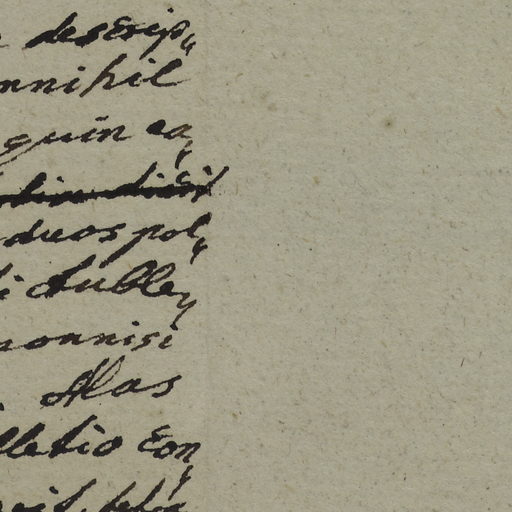 descrip„
mnihil
quin ea„
duos pol„
Aubley
nonnisi
Alas
lletio con„